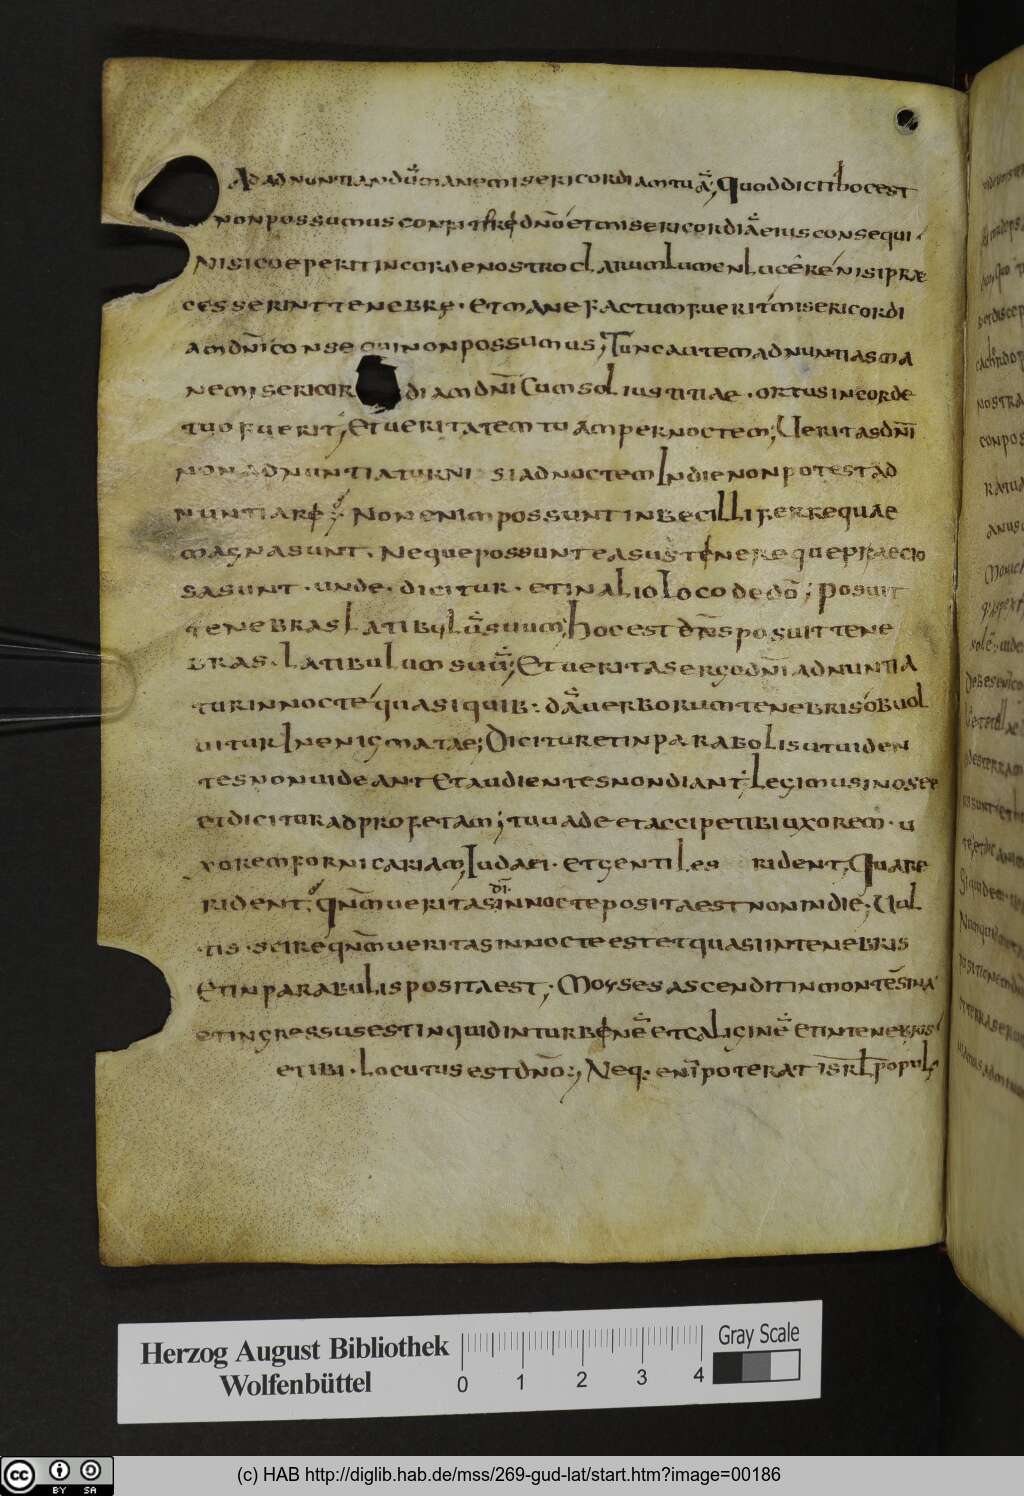 Ad adnuntiandū mane misericordiam tuā; Quod dicit hoc est
non possumus confiteri dn̄o et misericordiā eius consequi
Nisi coeperit in corde nostro clarum lumen lucere nisi prae
cesserint tenebrę · et mane factum fuerit misericordi
am dn̄i consequi non possumus; Tunc autem adnuntias ma
ne misericor diam dn̄i Cum sol iustitiae · ortus in corde
tuo fuerit; Et ueritatem tuam per noctem; Ueritas dn̄i
non adnuntiatur nisi ad noctem In die non potest ad
nuntiare Non enim possunt inbecilli ferre quae
magna sunt. Neque possunt ea sustenere que praecio
sa sunt · unde · dicitur · et in alio loco de dō; posuit
tenebras latibulū suum; hoc est dn̄s posuit tene
bras · latibulum suū; Et ueritas ergo dn̄i adnuntia
tur in nocte quasi quib: dā uerborum tenebris obuol
uitur In enigmatae; Dicitur et in parabolis ut uiden
tes non uideant Et audientes non diant; Legimus in osee
et dicitur ad profetam; tu uade et accipe tibi uxorem · u
xorem fornicariam; Iudaei · et gentiles rident; Quare
rident; qn̄m ueritas dī. in nocte posita est non in die; Uul
tis · scire qn̄m ueritas in nocte est et quasi in tenebris
Et in parabulis posita est; Moyses ascendit in montē sina
et ingressus est inquid in turbenē et caliginē et in tenebris
et ibi · locutus est dn̄o; Neq· enī poterat isrl̄ populs
Herzog August Bibliothek
Wolfenbüttel
0 1 2 3 4
Gray Scale
cc BY SA
(c) HAB http://diglib.hab.de/mss/269-gud-lat/start.htm?image=00186